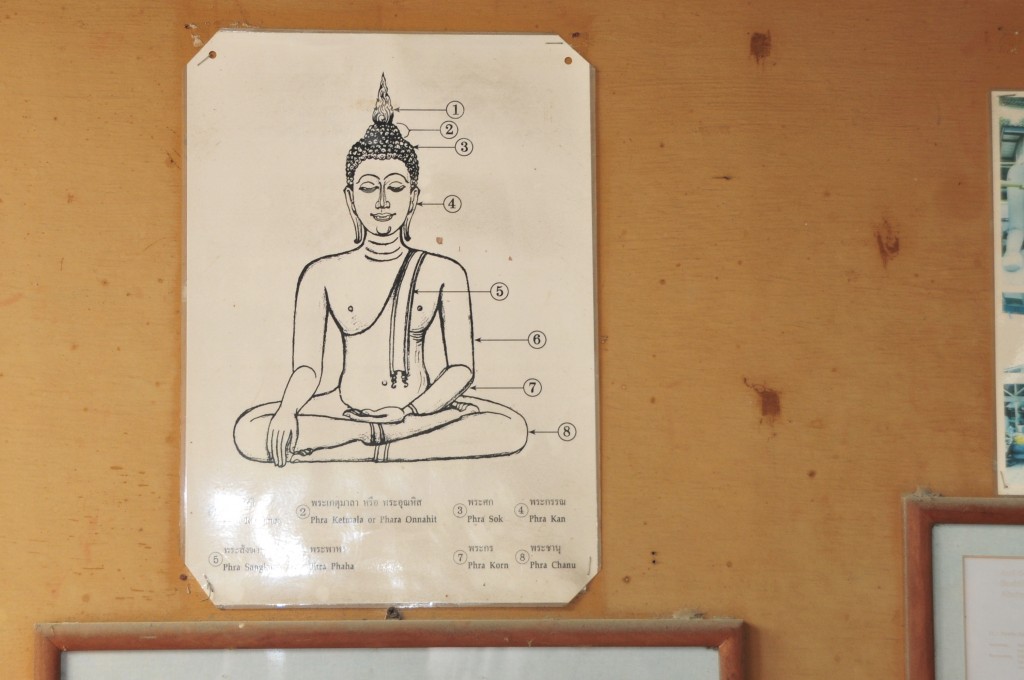 ①
②
③
④
⑤
⑥
⑦
⑧
② พระเกตุมาลา หรือ พระอุณหิส ③ พระศก ④ พระกรรณ
Phra Ketmala or Phara Onnahit Phra Sok Phra Kan
⑤ พระพาหา ⑦ พระกร ⑧ พระชานุ
Phra Phra Phaha Phra Korn Phra Chanu